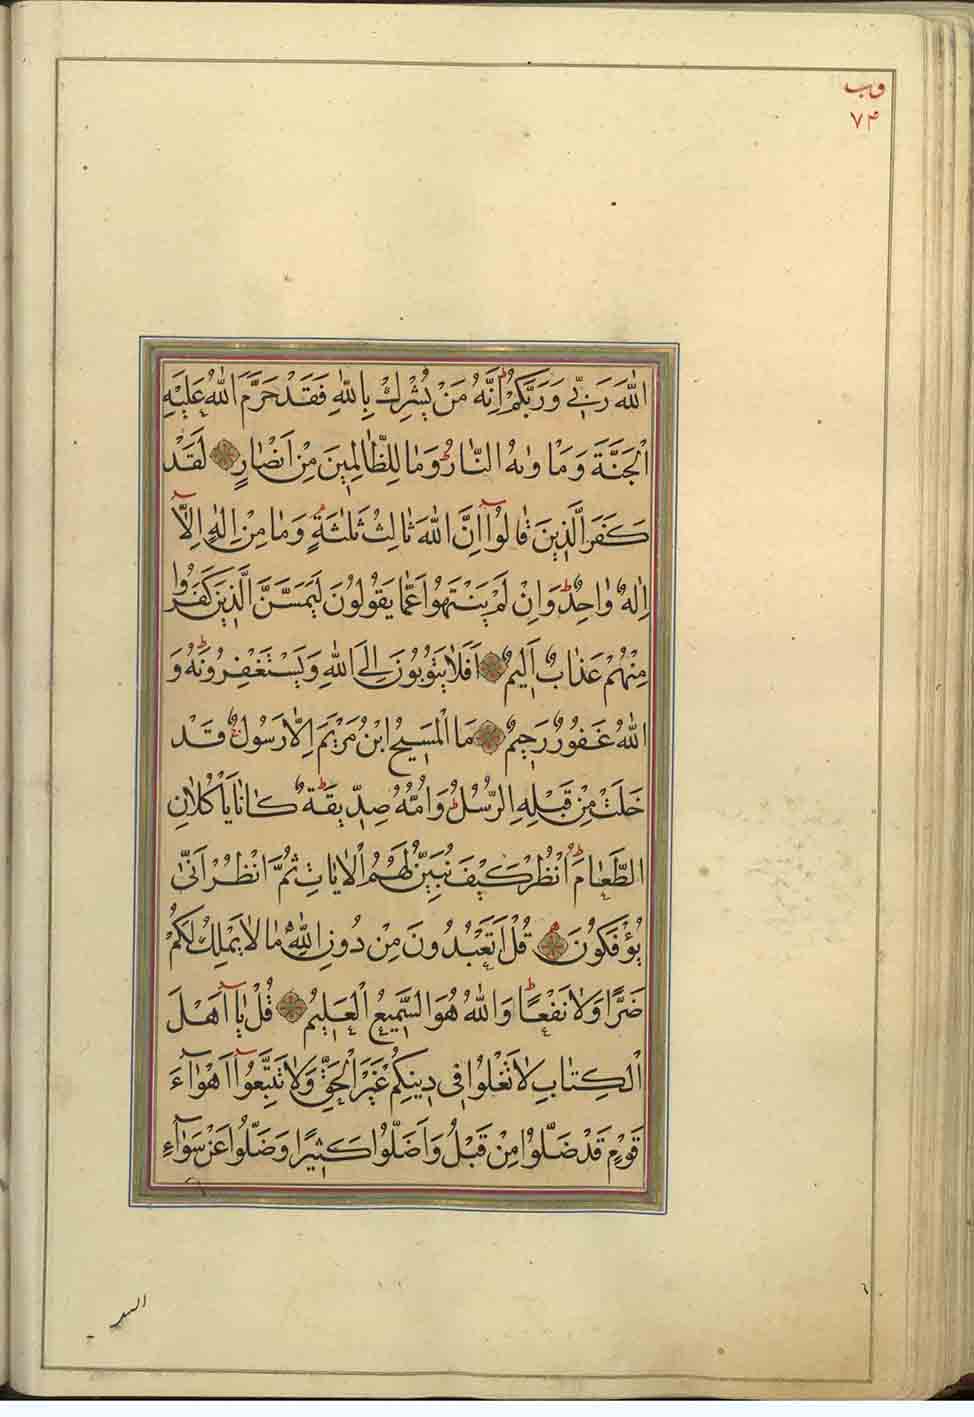 وب
۷۴
اللّٰهَ رَبّٖي وَرَبَّكُمْ اِنَّهُ مَنْ يُشْرِكْ بِاللّٰهِ فَقَدْ حَرَّمَ اللّٰهُ عَلَيْهِ
الْجَنَّةَ وَمَاْوٰىهُ النَّارُ وَمَا لِلظَّالِمٖينَ مِنْ اَنْصَارٍ لَقَدْ
كَفَرَ الَّذٖينَ قَالُوٓا اِنَّ اللّٰهَ ثَالِثُ ثَلٰثَةٍ وَمَا مِنْ اِلٰهٍ اِلَّآ
اِلٰهٌ وَاحِدٌ وَاِنْ لَمْ يَنْتَهُوا عَمَّا يَقُولُونَ لَيَمَسَّنَّ الَّذٖينَ كَفَرُوا
مِنْهُمْ عَذَابٌ اَلٖيمٌ اَفَلَا يَتُوبُونَ اِلَى اللّٰهِ وَيَسْتَغْفِرُونَهُ وَ
اللّٰهُ غَفُورٌ رَحٖيمٌ مَا الْمَسٖيحُ ابْنُ مَرْيَمَ اِلَّا رَسُولٌ قَدْ
خَلَتْ مِنْ قَبْلِهِ الرُّسُلُ وَاُمُّهُ صِدّٖيقَةٌ كَانَا يَاْكُلَانِ
الطَّعَامَ اُنْظُرْ كَيْفَ نُبَيِّنُ لَهُمُ الْاٰيَاتِ ثُمَّ انْظُرْ اَنّٰى
يُؤْفَكُونَ قُلْ اَتَعْبُدُونَ مِنْ دُونِ اللّٰهِ مَا لَا يَمْلِكُ لَكُمْ
ضَرًّا وَلَا نَفْعًا وَاللّٰهُ هُوَ السَّمٖيعُ الْعَلٖيمُ قُلْ يَآ اَهْلَ
الْكِتَابِ لَا تَغْلُوا فٖي دٖينِكُمْ غَيْرَ الْحَقِّ وَلَا تَتَّبِعُوٓا اَهْوَآءَ
قَوْمٍ قَدْ ضَلُّوا مِنْ قَبْلُ وَاَضَلُّوا كَثٖيرًا وَضَلُّوا عَنْ سَوَآءِ
السبيل